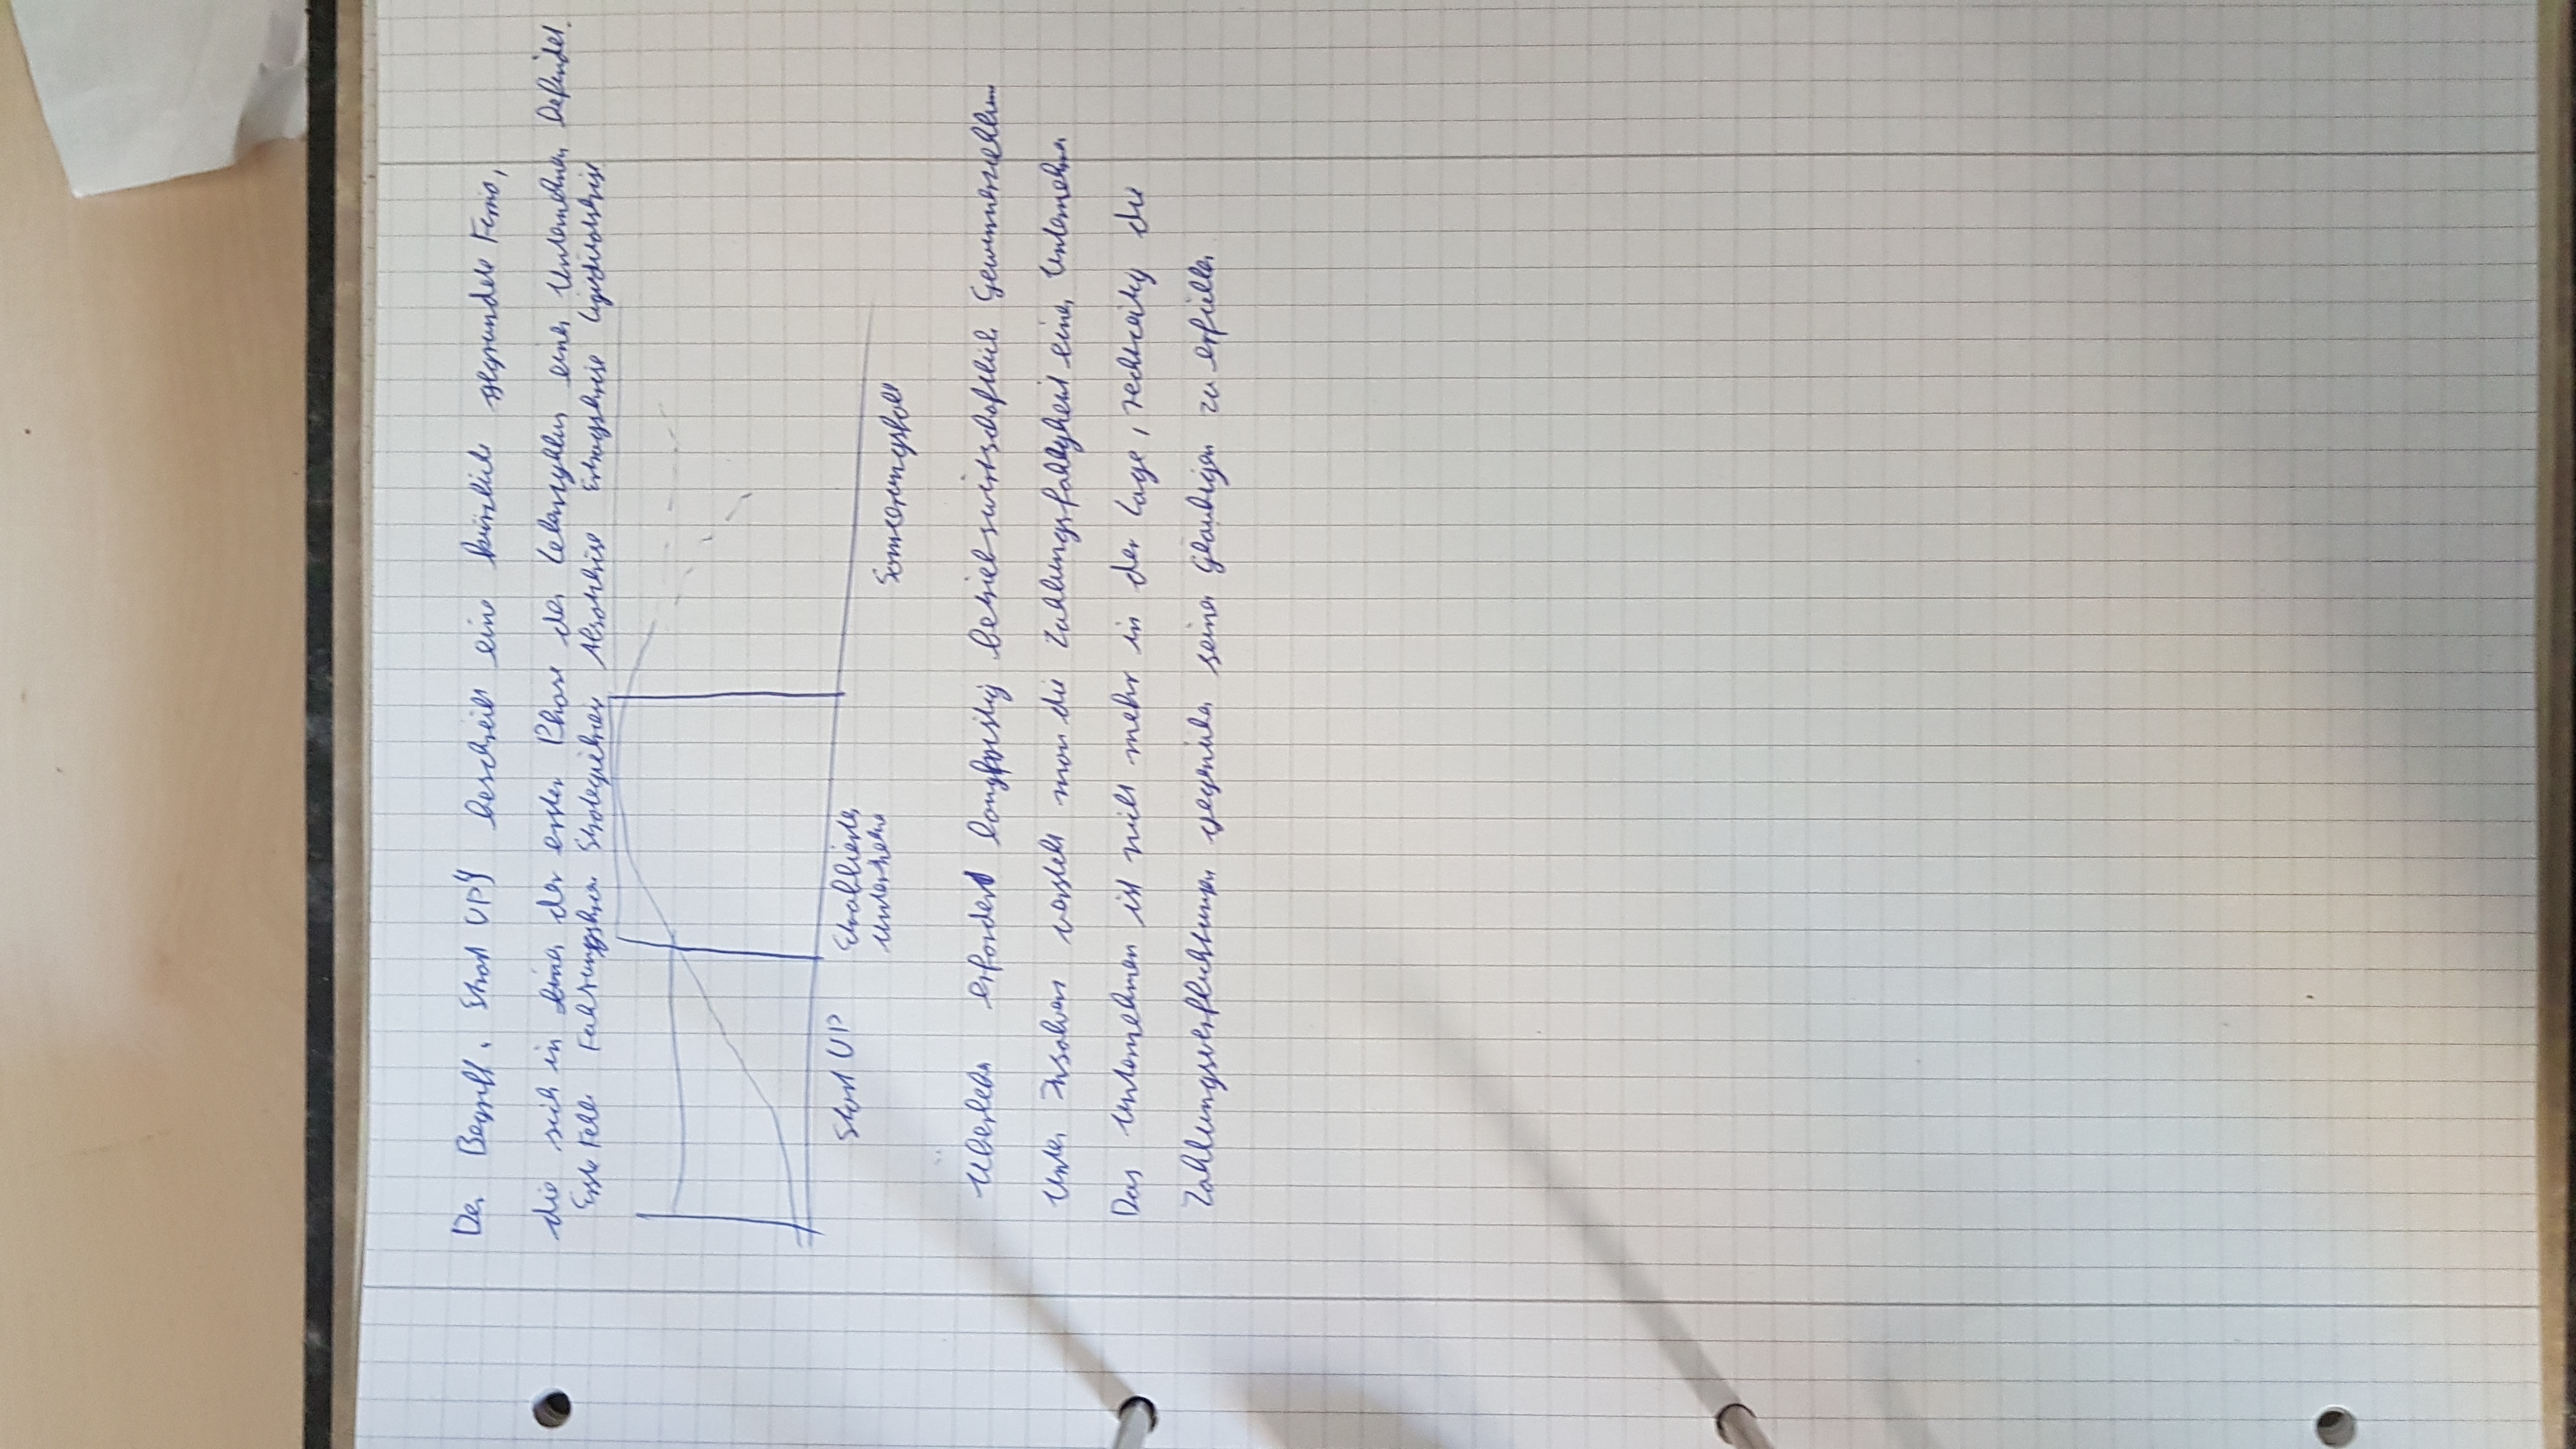 Der Begriff „Start UP" beschreibt eine kürzlich gegründete Firma,
die sich in einer der ersten Phase des Lebenszyklus eines Unternehmen befindet.
Erste Fehler Führungskrise Strategiekrise Absatzkrise Ertragskrise Liquiditätskrise
Start UP
Etabliertes
Unternehmen
Sanierungsfall
Überleben erfordert langfristig betriebswirtschaftlich Gewinnerzielung
Unter Insolvenz versteht man die Zahlungsfähigkeit eines Unternehmen
Das Unternehmen ist nicht mehr in der Lage, rechtzeitig die
Zahlungsverpflichtungen gegenüber seiner Gläubiger zu erfüllen